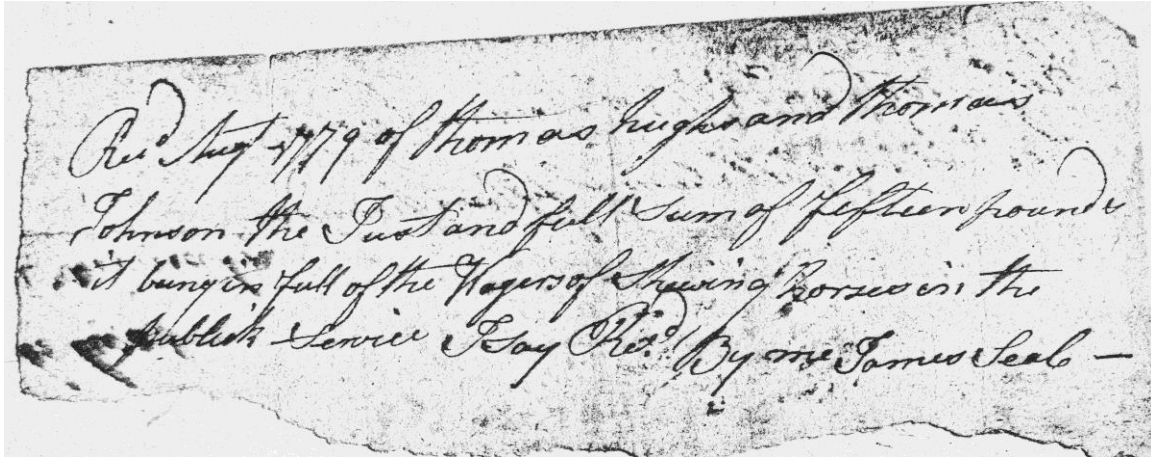 Recd Augt 1779 of thomas hughs and thomas
Johnson the Just and full Sum of fifteen pounds
it being in full of the Wagers of Shewing horses in the
publick Service I say Recd By me James Seal —